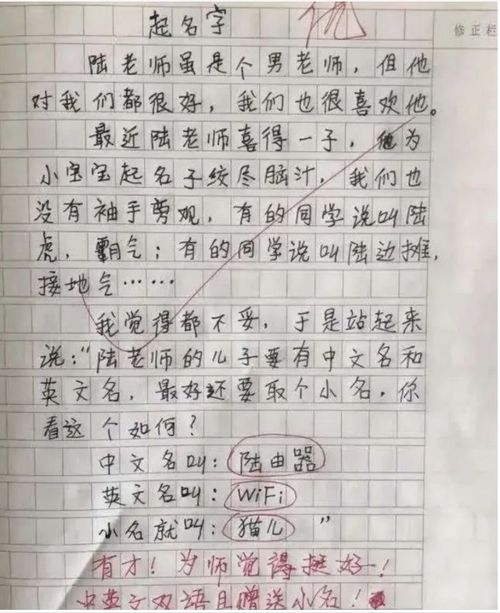 起名字 优
修正栏
陆老师虽是个男老师，但他
对我们都很好，我们也很喜欢他。
最近陆老师喜得一子，他为
小宝宝起名子绞尽脑汁，我们也
没有袖手旁观，有的同学说叫陆
虎，霸气；有的同学说叫陆边摊，
接地气……
我觉得都不妥，于是站起来
说：“陆老师的儿子要有中文名和
英文名，最好还要取个小名，你
看这个如何？
中文名叫：陆由器
英文名叫：WiFi
小名就叫：猫儿”
有才！为师觉得挺好！
中英文双语且赠送小名！